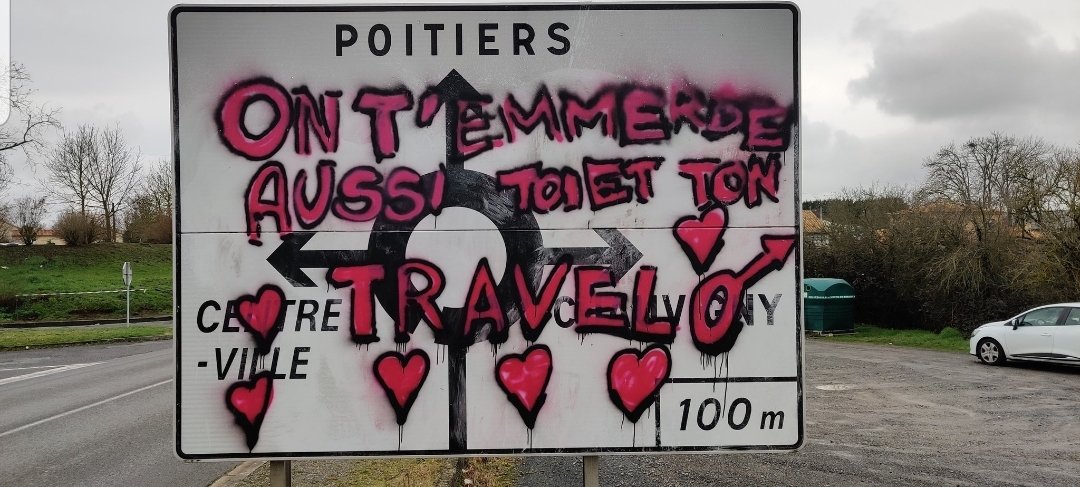 POITIERS
ONT'EMMERDE
AUSSI TOI ET TON
TRAVELO
CENTRE
-VILLE
CHAUVIGNY
100 m